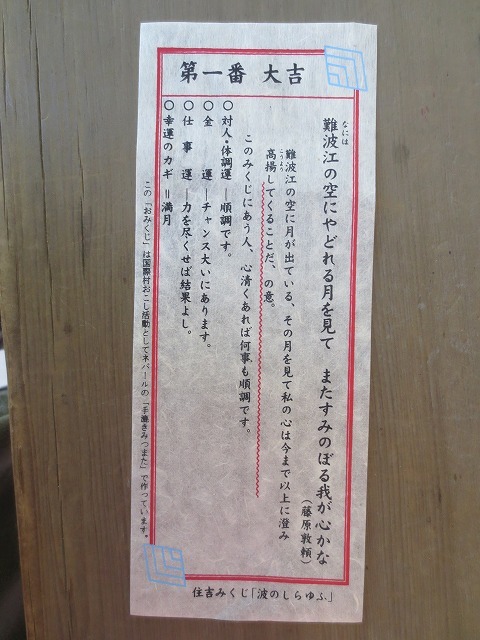 第一番 大吉
難波江の空にやどれる月を見て またすみのぼる我が心かな
なには
(藤原敦頼)
難波江の空に月が出ている、その月を見て私の心は今まで以上に澄み
こうよう
高揚してくることだ、の意。
このみくじにあう人、心清くあれば何事も順調です。
〇対人・体調運―順調です。
〇金運―チャンス大いにあります。
〇仕事運―力を尽くせば結果よし。
〇幸運のカギ=満月
この「おみくじ」は国際村おこし活動としてネパールの「手漉きみつまた」で作っています。
住吉みくじ「波のしらゆふ」